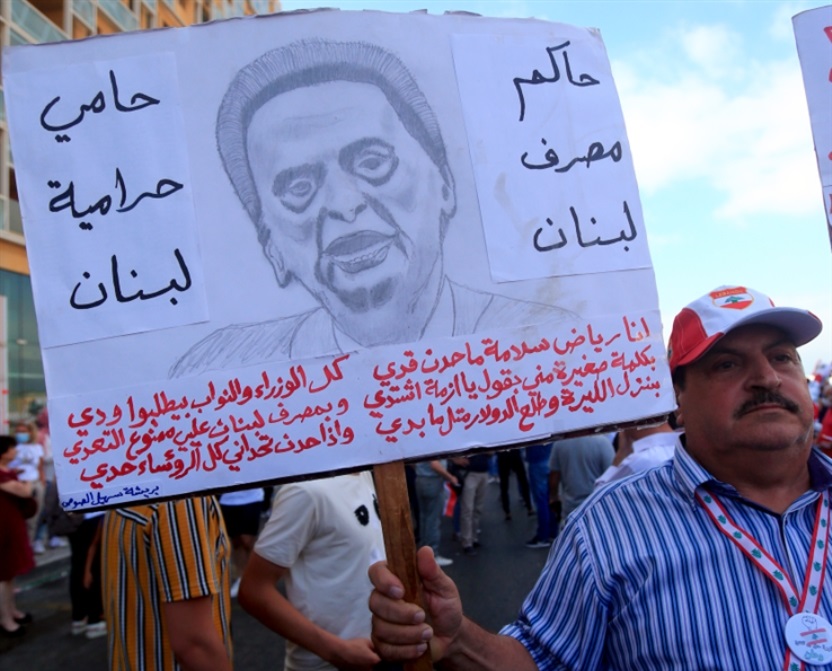 حاكم
مصرف
لبنان
حامي
حرامية
لبنان
انا رياض سلامة ما حدن قدي
بكلمة صغيرة مني بقول يا ازمة اشتدي
بنزل الليرة وطلع الدولار متل ما بدي
كل الوزراء والنواب بيطلبوا ودي
وبمصرف لبنان علين ممنوع التعدي
واذا حدن تحداني كل الرؤساء حدي
بريشة سهيل